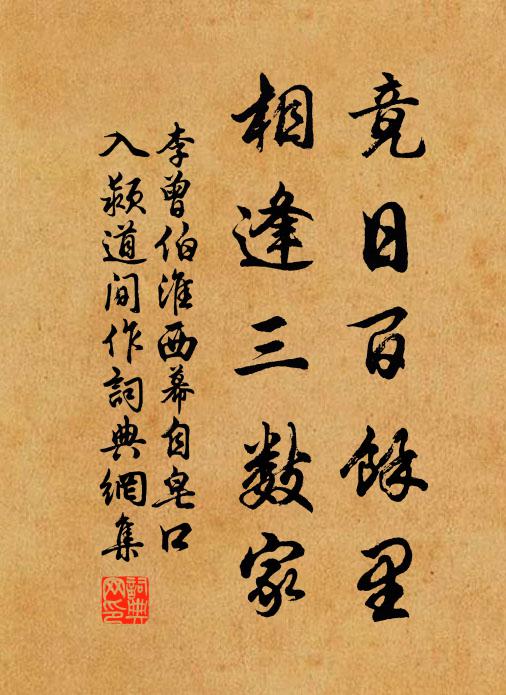 竟日百餘里
相逢三數家
李曾伯淮西幕自皂口
入潁道間作詞典網集
詞典網印